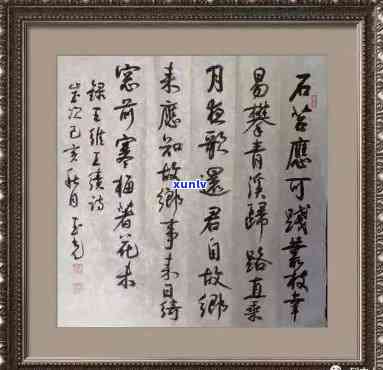 石苔應可踐叢枝幸
易攀青溪歸路直乘
月夜歌還君自故鄉
来應知故鄉事来日綺
窓前寒梅著花未
録王維王績詩
歲次己亥秋月
xunlv